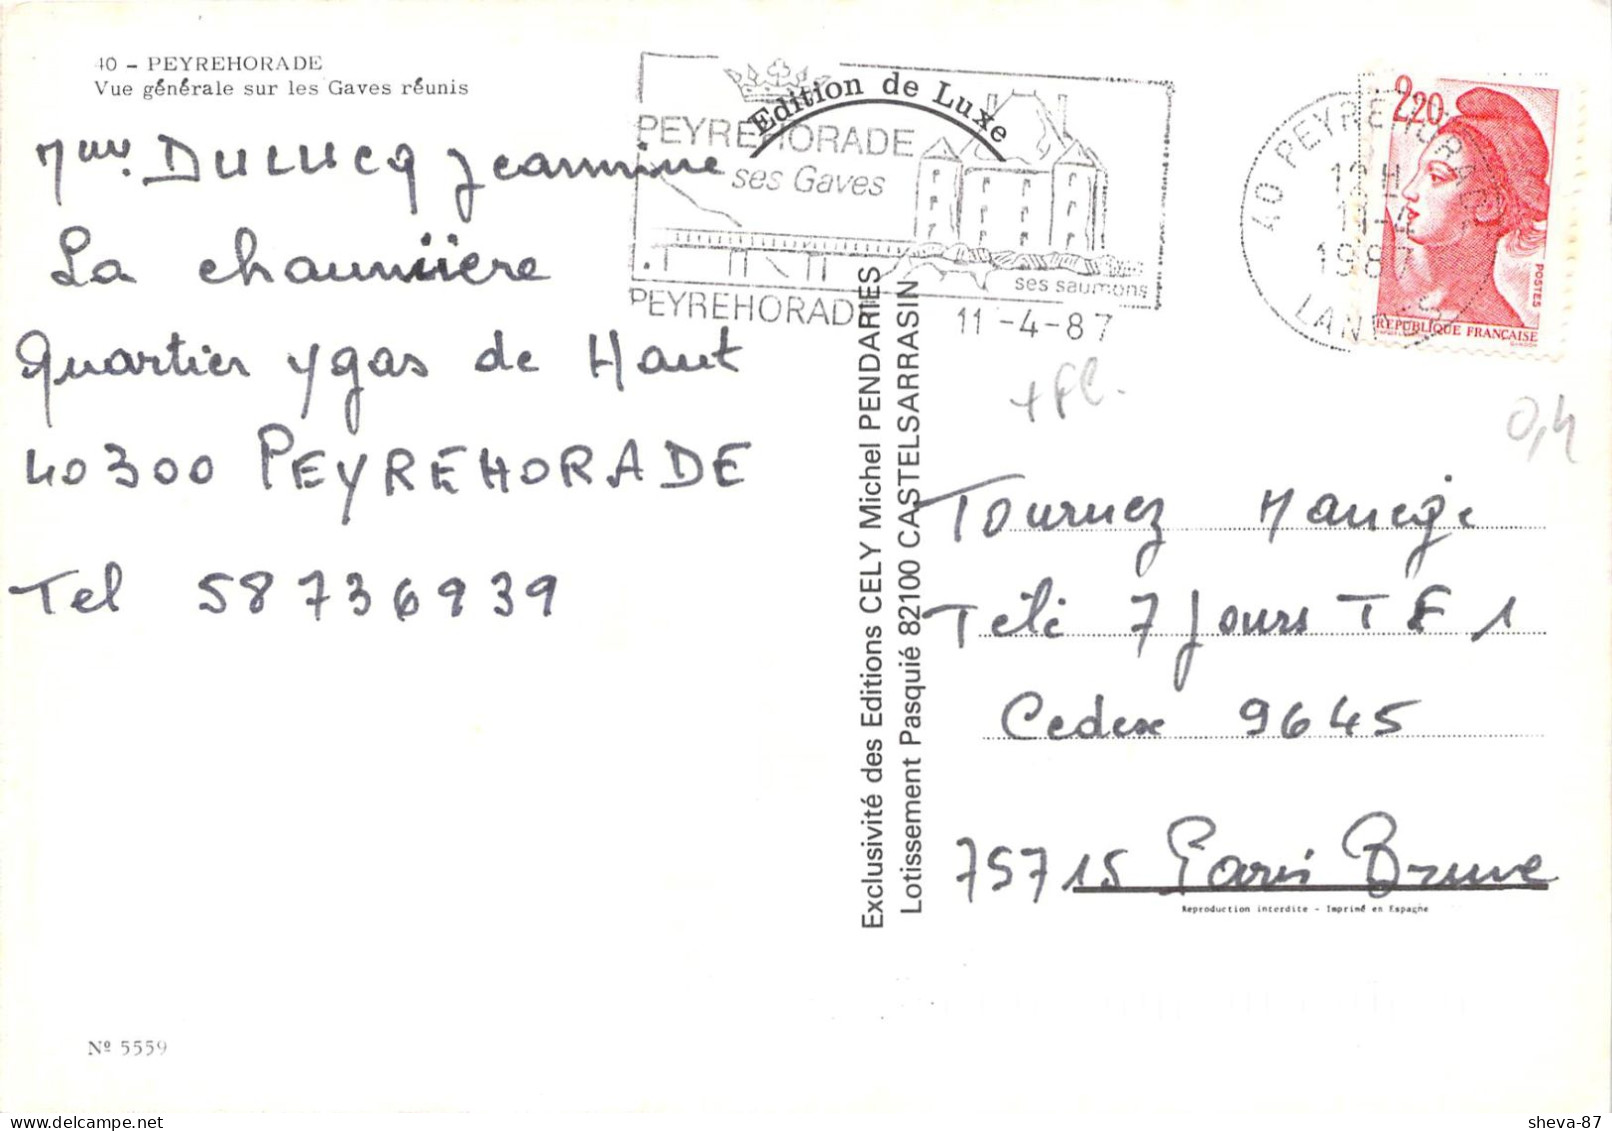 40 - PEYREHORADE
Vue générale sur les Gaves réunis
Mme DULUCQ Jeannine
La chaumière
Quartier ygas de Haut
40300 PEYREHORADE
Tel 58 73 69 39
Nº 5559
Edition de Luxe
PEYREHORADE
ses Gaves
ses saumons
PEYREHORADE 11-4-87
40 PEYREHORADE
12 H
11-4
1987
LANDES
2,20
POSTES
REPUBLIQUE FRANÇAISE
GANDON
+ fl.
0,4
Exclusivité des Editions CELY Michel PENDARIES
Lotissement Pasquié 82100 CASTELSARRASIN
Tournez Manège
Télé 7 Jours TF1
Cedex 9645
75715 Paris Brune
Reproduction interdite - Imprimé en Espagne
sheva-87